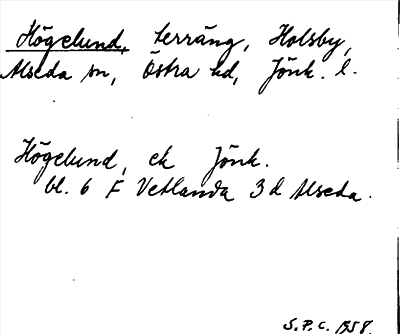 Högelund, terräng, Holsby,
Alseda sn, Östra hd, Jönk. l.
Högelund, ek Jönk.
bl. 6 F Vetlanda 3 d Alseda.
S.P.C. 1958.